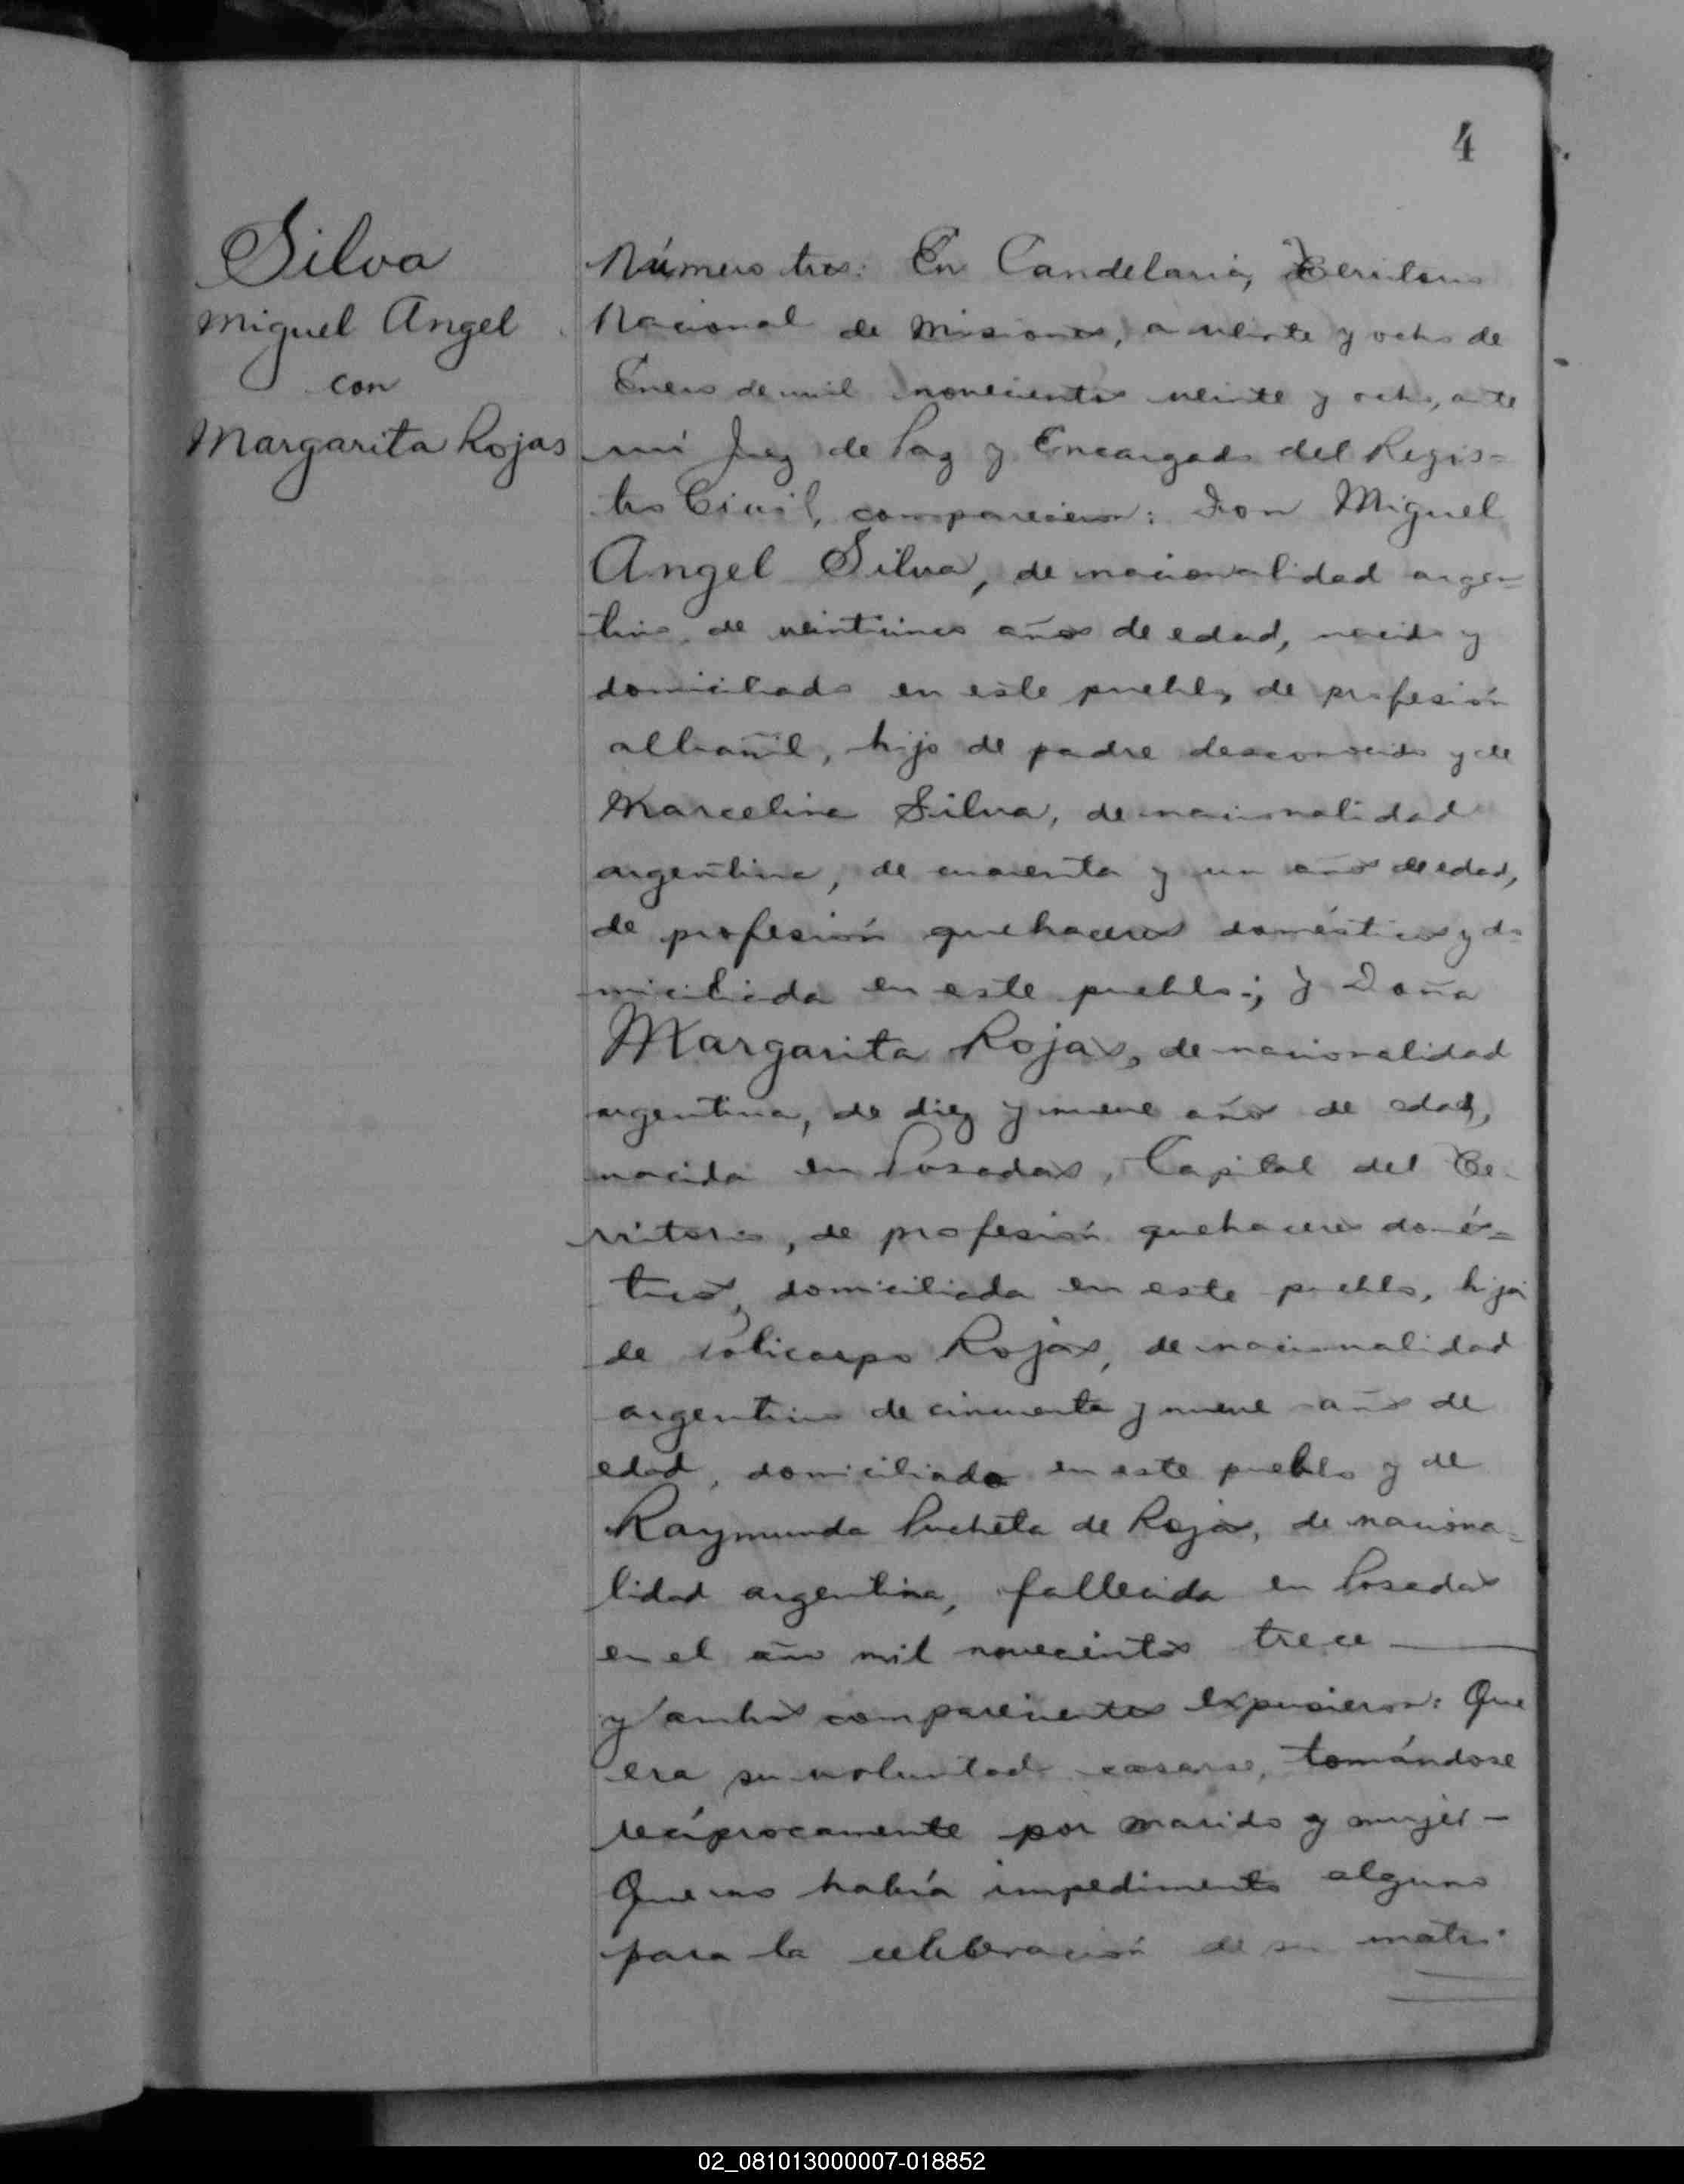 4
Silva
Miguel Angel
con
Margarita Rojas
Número tres: En Candelaria, Territorio
Nacional de Misiones, a veinte y ocho de
Enero de mil novecientos veinte y ocho, ante
mí Juez de Paz y Encargado del Regis=
tro Civil, comparecieron: Don Miguel
Angel Silva, de nacionalidad argen=
tino, de años de edad, nacido y
domiciliado en este pueblo, de profesión
albañil, hijo de padre desconocido y de
Marcelina Silva, de nacionalidad
argentina, de cuarenta y un años de edad,
de profesión quehaceres domésticos y do=
miciliada en este pueblo; y Doña
Margarita Rojas, de nacionalidad
argentina, de diez y nueve años de edad,
nacida en Posadas, Capital del Te-
rritorio, de profesión quehaceres domés=
ticos, domiciliada en este pueblo, hija
de Policarpo Rojas, de nacionalidad
argentino de cincuenta y nueve años de
edad, domiciliado en este pueblo y de
Raymunda Pucheta de Rojas, de naciona=
lidad argentina, fallecida en Posadas
en el año mil novecientos trece
y ambos comparecientes expusieron: Que
era su voluntad casarse, tomándose
recíprocamente por marido y mujer -
Que no había impedimento alguno
para la celebración de su matri-
02_081013000007-018852